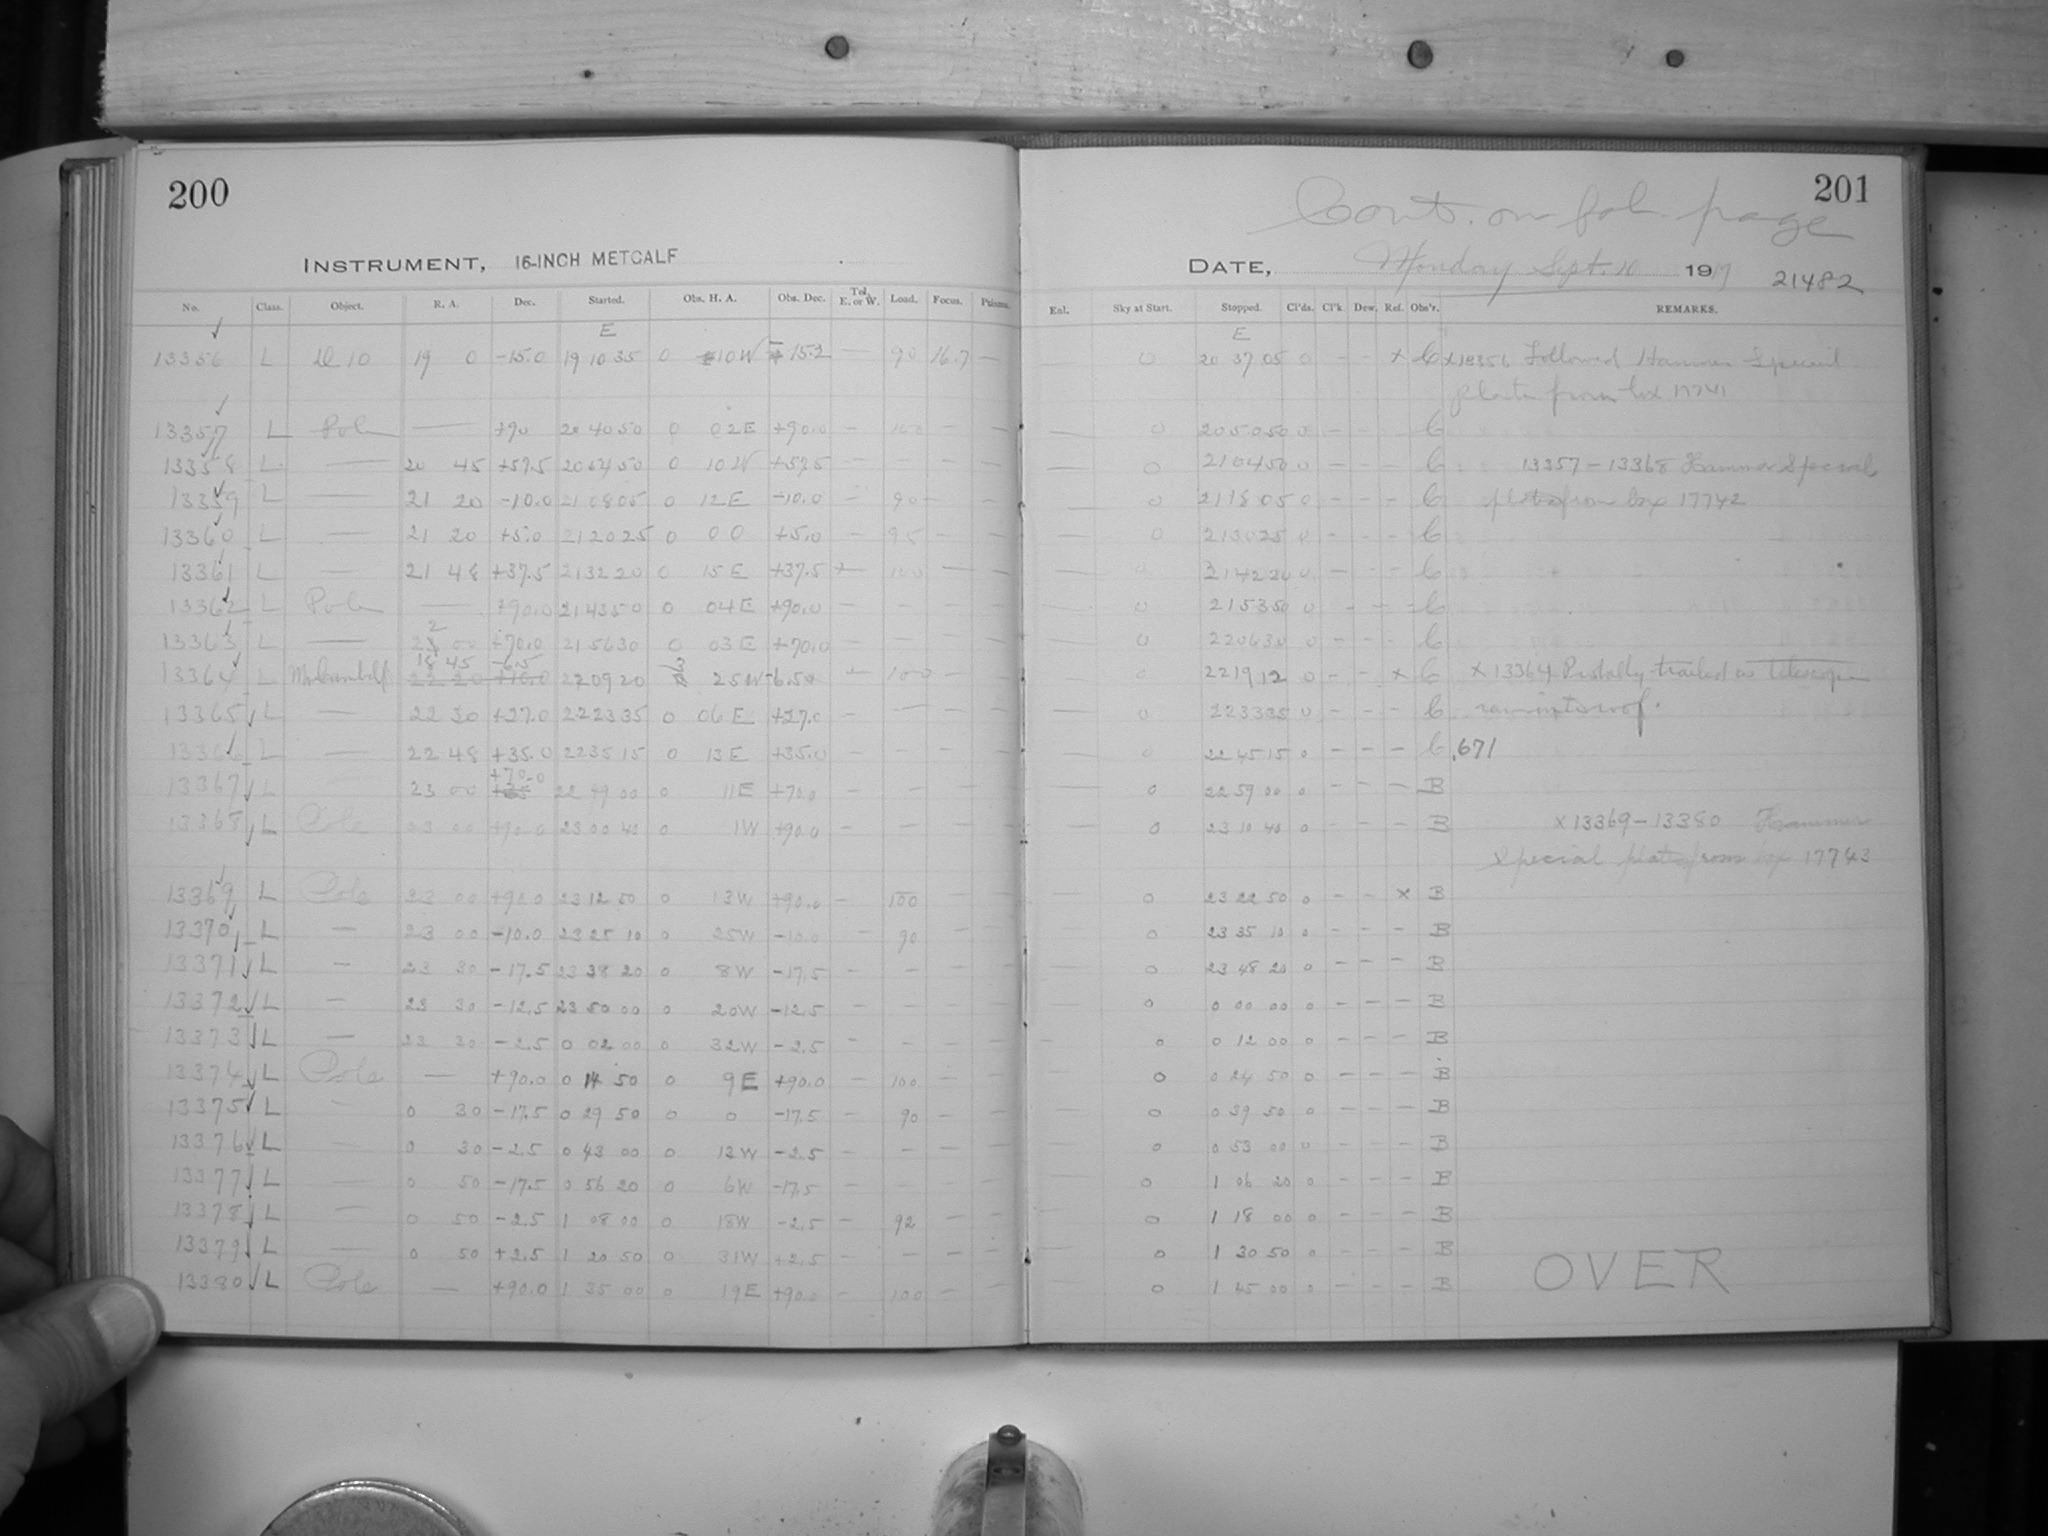 200
INSTRUMENT, 16-INCH METCALF
No. Class. Object. R. A. Dec. Started. Obs. H. A. Obs. Dec. Tel. E. or W. Load. Focus. Prisms.
E
13356 L 19 0 -15.0 19 10 35 0 10 W 15.2 — 90 16.7 —
13357 L Pole — +90 20 40 50 0 02 E +90.0 — 100 — —
13358 L — 20 45 +57.5 20 54 50 0 10 W +57.5 — — — —
13359 L — 21 20 -10.0 21 08 05 0 12 E -10.0 — 90 — —
13360 L — 21 20 +5.0 21 20 25 0 0 0 +5.0 — 95 — —
13361 L — 21 48 +37.5 21 32 20 0 15 E +37.5 — 100 — —
13362 L Pole — +90.0 21 43 50 0 04 E +90.0 — — — —
13363 L — 22 00 +70.0 21 56 30 0 03 E +70.0 — — — —
13364 L 18 45 -6.5 22 20 +10.0 22 09 20 25 W -6.5 — 100 — —
13365 L — 22 30 +27.0 22 23 35 0 06 E +27.0 — — — —
13366 L — 22 48 +35.0 22 35 15 0 13 E +35.0 — — — —
13367 L 23 00 +70.0 22 49 00 0 11 E +70.0 — — — —
13368 L Pole 23 00 +90.0 23 00 40 0 1 W +90.0 — — — —
13369 L Pole 23 00 +90.0 23 12 50 0 13 W +90.0 — 100
13370 L — 23 00 -10.0 23 25 10 0 25 W -10.0 — 90 — —
13371 L — 23 30 -17.5 23 38 20 0 8 W -17.5 — — — —
13372 L — 23 30 -12.5 23 50 00 0 20 W -12.5 — — —
13373 L — 23 30 -2.5 0 02 00 0 32 W -2.5 — — — —
13374 L Pole — +90.0 0 14 50 0 9 E +90.0 — 100 — —
13375 L — 0 30 -17.5 0 29 50 0 0 -17.5 — 90 — —
13376 L — 0 30 -2.5 0 43 00 0 13 W -2.5 — — — —
13377 L — 0 50 -17.5 0 56 20 0 6 W -17.5 — — — —
13378 L — 0 50 -2.5 1 08 00 0 18 W -2.5 — 92 — —
13379 L — 0 50 +2.5 1 20 50 0 31 W +2.5 — — — —
13380 L Pole — +90.0 1 35 00 0 19 E +90.0 — 100 — —
201
Cont. on fol. page
DATE, Monday Sept. 10 1917 21482
Enl. Sky at Start. Stopped. Cl'ds. Cl'k Dew. Ref. Obs'r. REMARKS.
E
0 20 37 05 0 — — x C x13356 Followed Hammer Special
plate from box 17741
— 0 20 50 50 0 — — — C
— 0 21 04 50 0 — — — C 13357-13368 Hammer Special
— 0 21 18 05 0 — — — C plates from box 17742
— 0 21 30 25 0 — — — C
— 0 21 42 20 0 — — — C
— 0 21 53 50 0 — — — C
— 0 22 06 30 0 — — — C
— 0 22 19 12 0 — — x C x 13364 Partially trailed as telescope
— 0 22 33 35 0 — — — C ran into roof.
— 0 22 45 15 0 — — — C .671
— 0 22 59 00 0 — — — B
— 0 23 10 40 0 — — — B x13369-13380 Hammer
Special plates from box 17743
— 0 23 22 50 0 — — x B
— 0 23 35 10 0 — — — B
— 0 23 48 20 0 — — — B
— 0 0 00 00 0 — — — B
— 0 0 12 00 0 — — — B
— 0 0 24 50 0 — — — B
— 0 0 39 50 0 — — — B
— 0 0 53 00 0 — — — B
— 0 1 06 20 0 — — — B
— 0 1 18 00 0 — — — B
— 0 1 30 50 0 — — — B OVER
— 0 1 45 00 0 — — — B